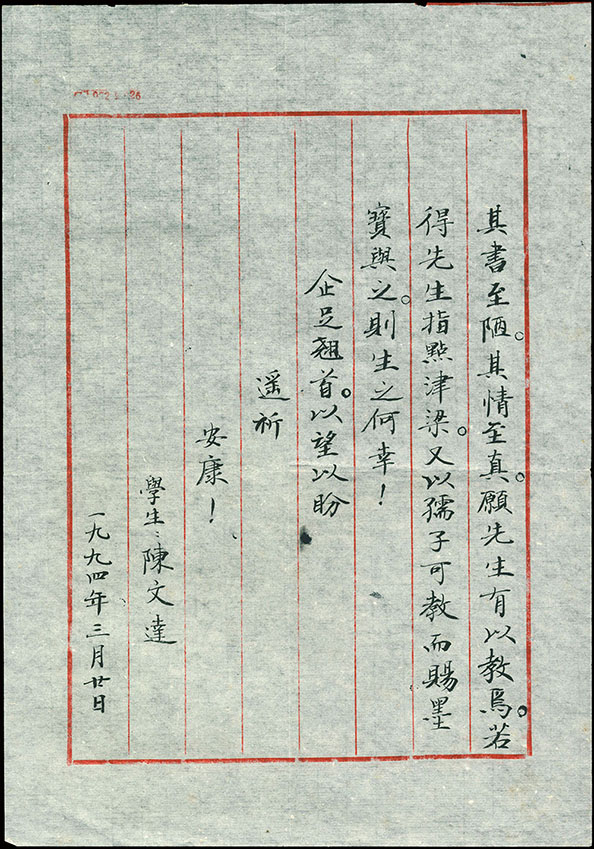 其書至陋。其情至真。願先生有以教焉。若
得先生指點津梁。又以孺子可教而賜墨
寶與之。則生之何幸！
企足翹首。以望以盼
遥祈
安康！
學生：陳文達
一九九四年三月廿日